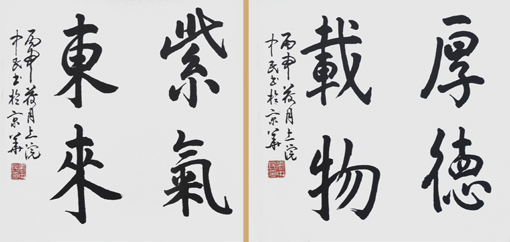 厚德
載物
丙申荷月上浣
中民书於京華
紫氣
東來
丙申荷月上浣
中民书於京華